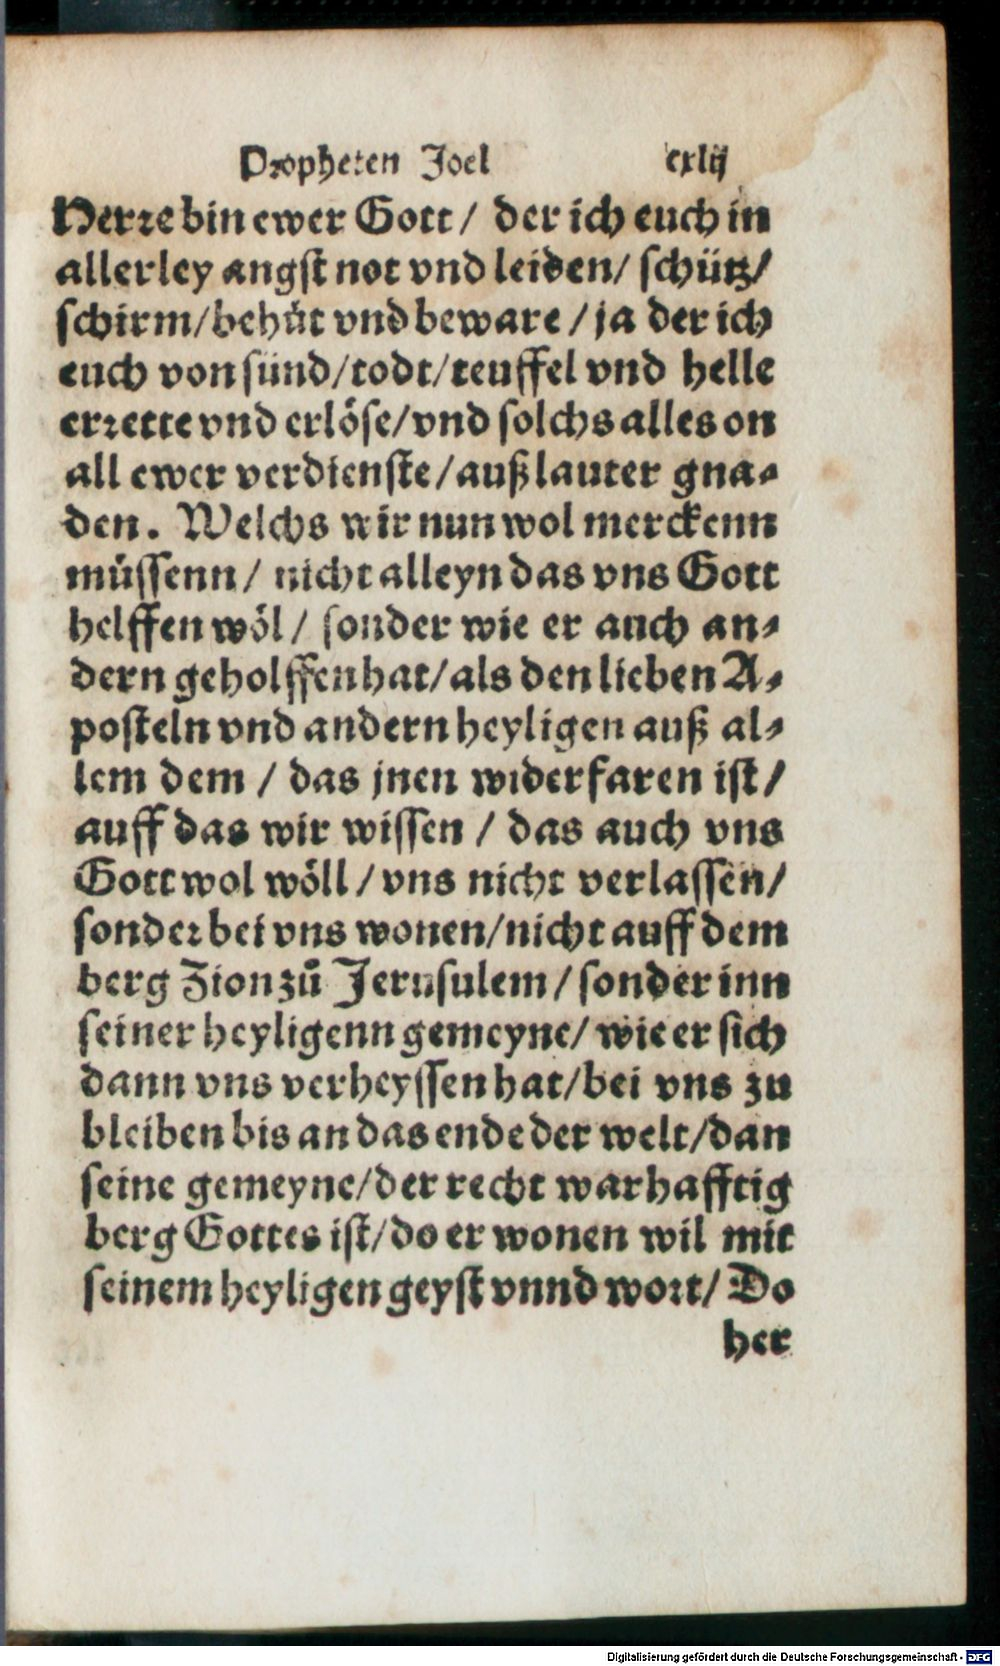 Propheten Joel cxlij
Herre bin ewer Gott / der ich euch in
allerley angst not vnd leiden / schütz /
schirm / behüt vnd beware / ja der ich
euch von sünd / todt / teuffel vnd helle
errette vnd erlöse / vnd solchs alles on
all ewer verdienste / auß lauter gna-
den. Welchs wir nun wol merckenn
müssenn / nicht alleyn das vns Gott
helffen wöl / sonder wie er auch an-
dern geholffen hat / als den lieben A-
posteln vnd andern heyligen auß al-
lem dem / das jnen widerfaren ist /
auff das wir wissen / das auch vns
Gott wol wöll / vns nicht verlassen /
sonder bei vns wonen / nicht auff dem
berg Zion zů Jerusulem / sonder inn
seiner heyligenn gemeyne / wie er sich
dann vns verheyssen hat / bei vns zu
bleiben bis an das ende der welt / dan
seine gemeyne / der recht warhafftig
berg Gottes ist / do er wonen wil mit
seinem heyligen geyst vnnd wort / Do
her
Digitalisierung gefördert durch die Deutsche Forschungsgemeinschaft - DFG